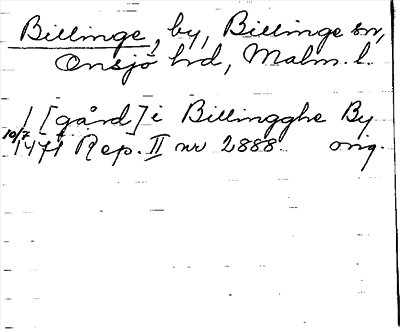 Billinge, by, Billinge sn,
Onsjö hrd, Malm. l.
1 [gård] i Billingghe By
10/7 1471 Rep. II nr 2888 orig.